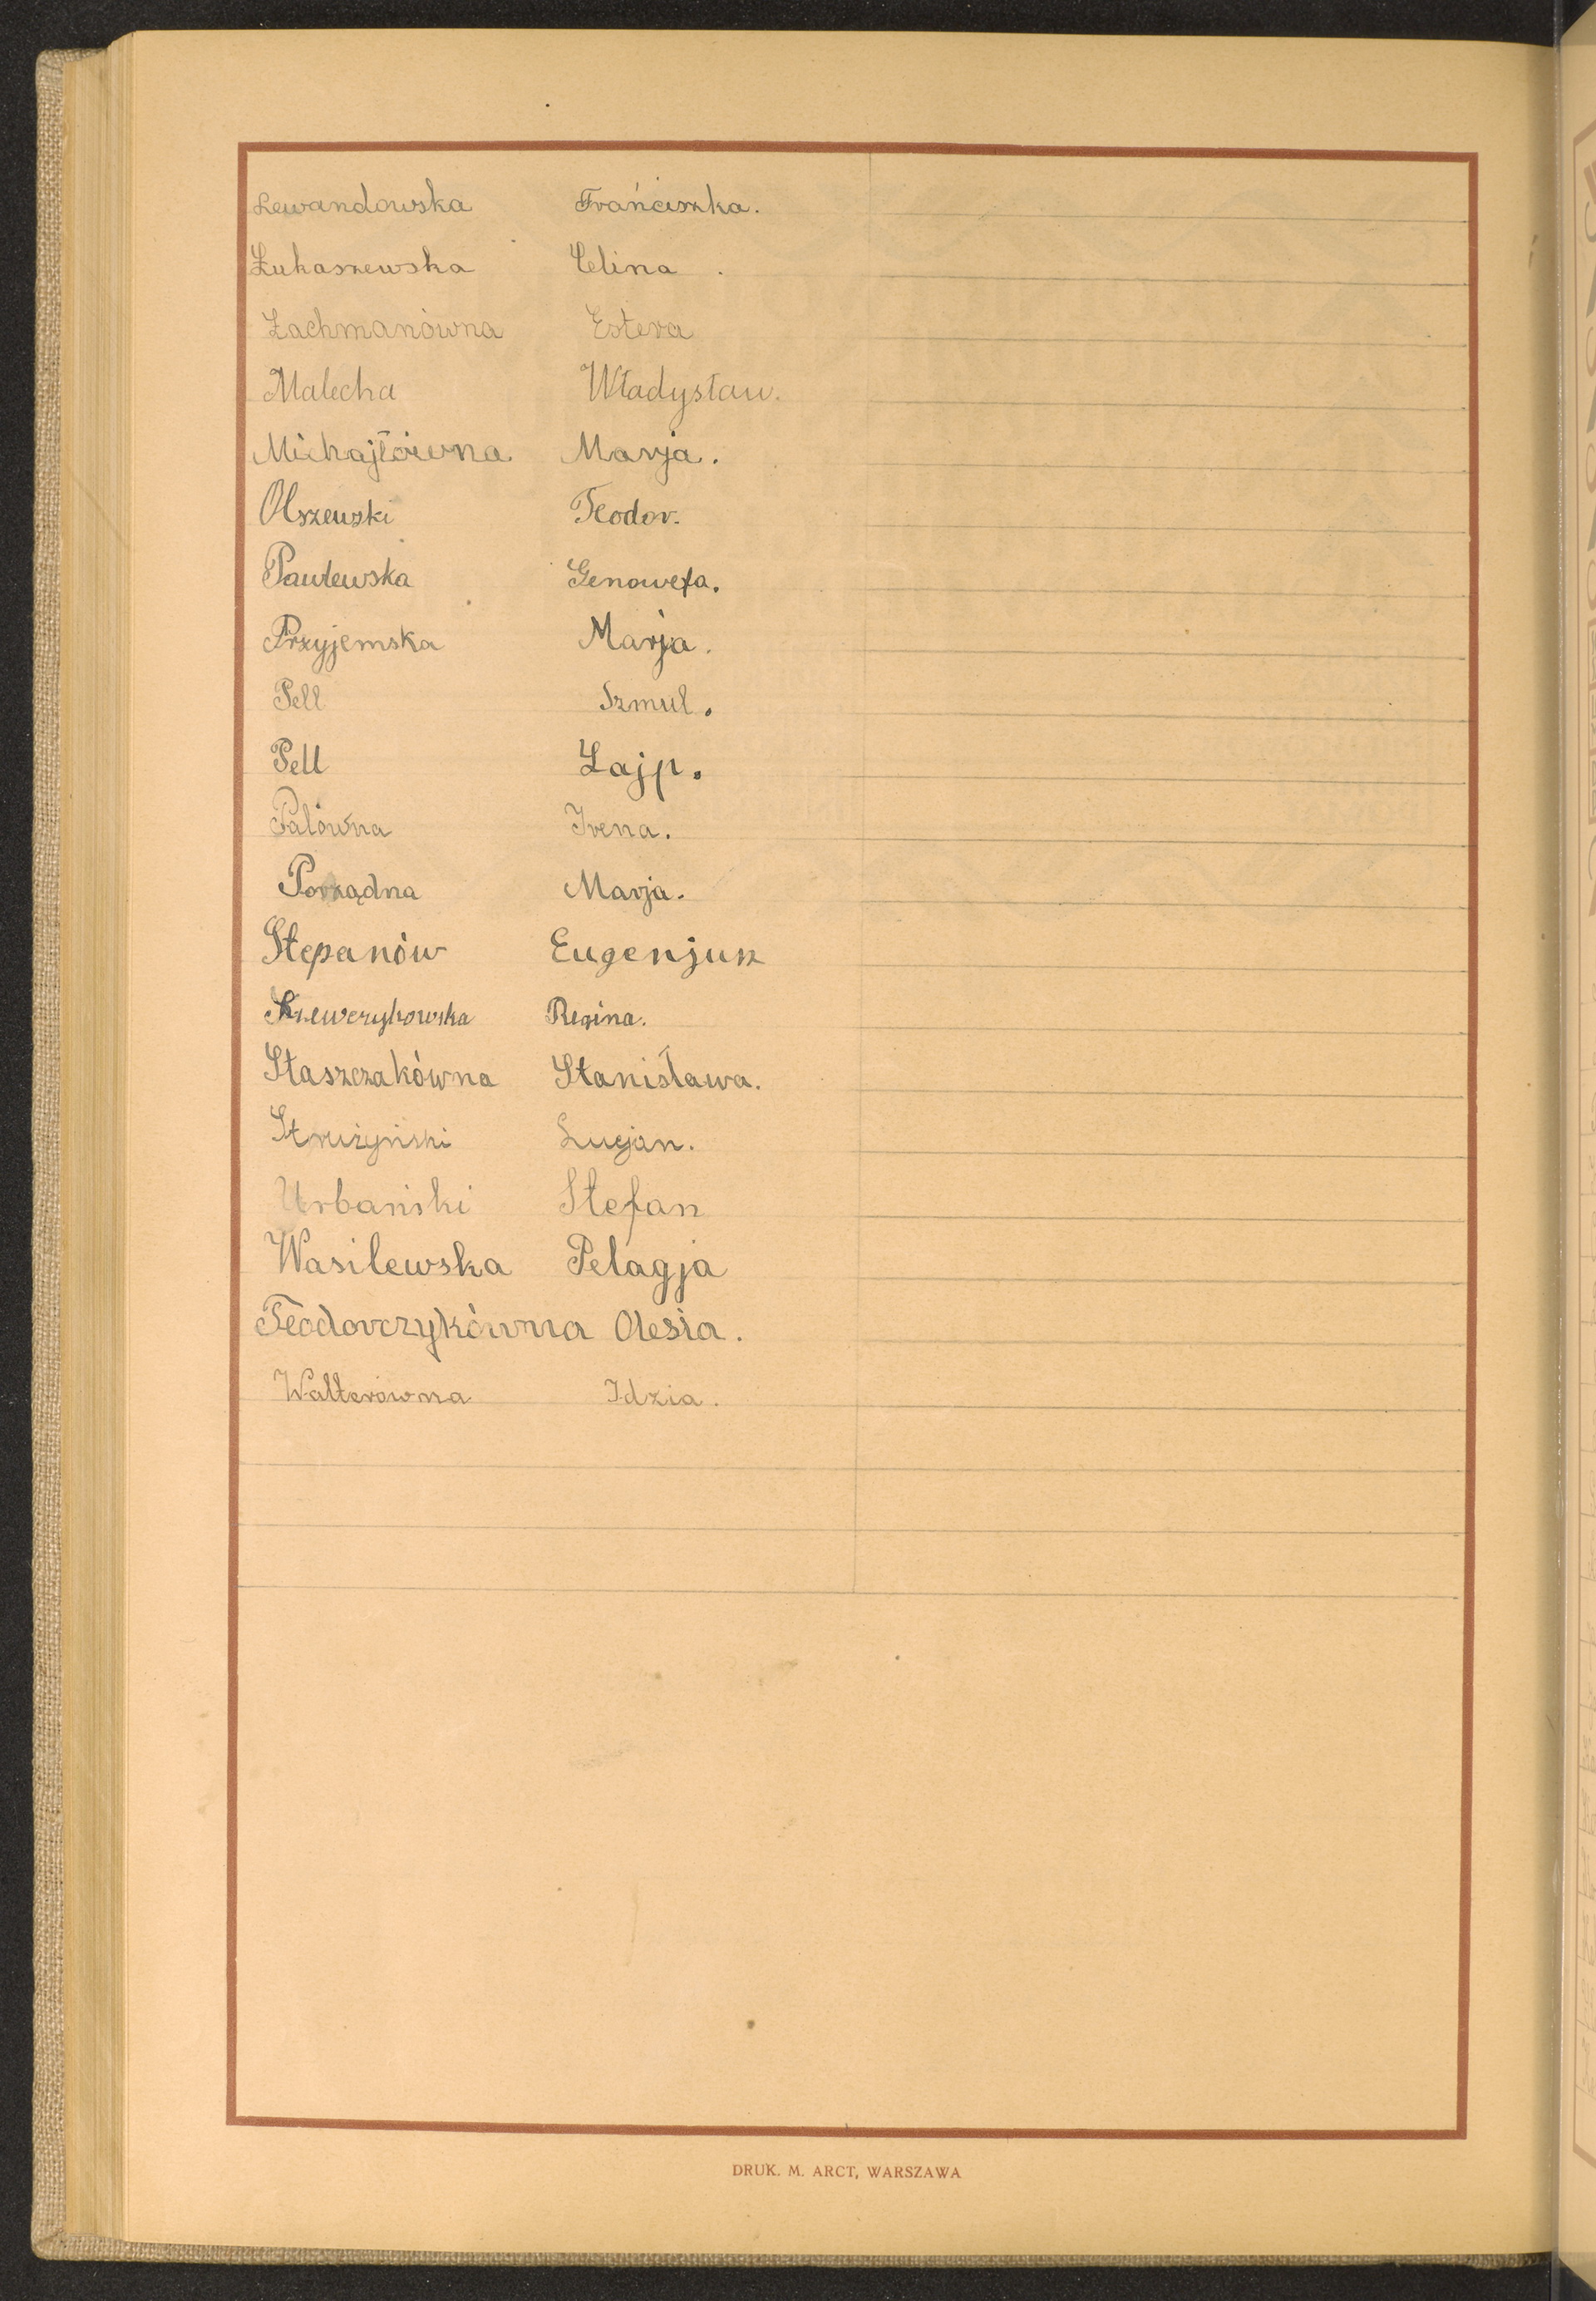 Lewandowska Frańciszka.
Łukaszewska Celina .
Lachmanówna Estera
Malecha Władysław.
Michajłówna Marja.
Olszewski Teodor.
Pawlewska Genowefa.
Przyjemska Marja.
Pell Szmul.
Pell Lajp.
Palówna Irena.
Porządna Marja.
Stepanów Eugenjusz
Szewczykowska Regina.
Staszczakówna Stanisława.
Strużyński Lucjan.
Urbański Stefan
Wasilewska Pelagja
Teodorczykówna Olesia.
Walterówna Idzia.
DRUK. M. ARCT, WARSZAWA